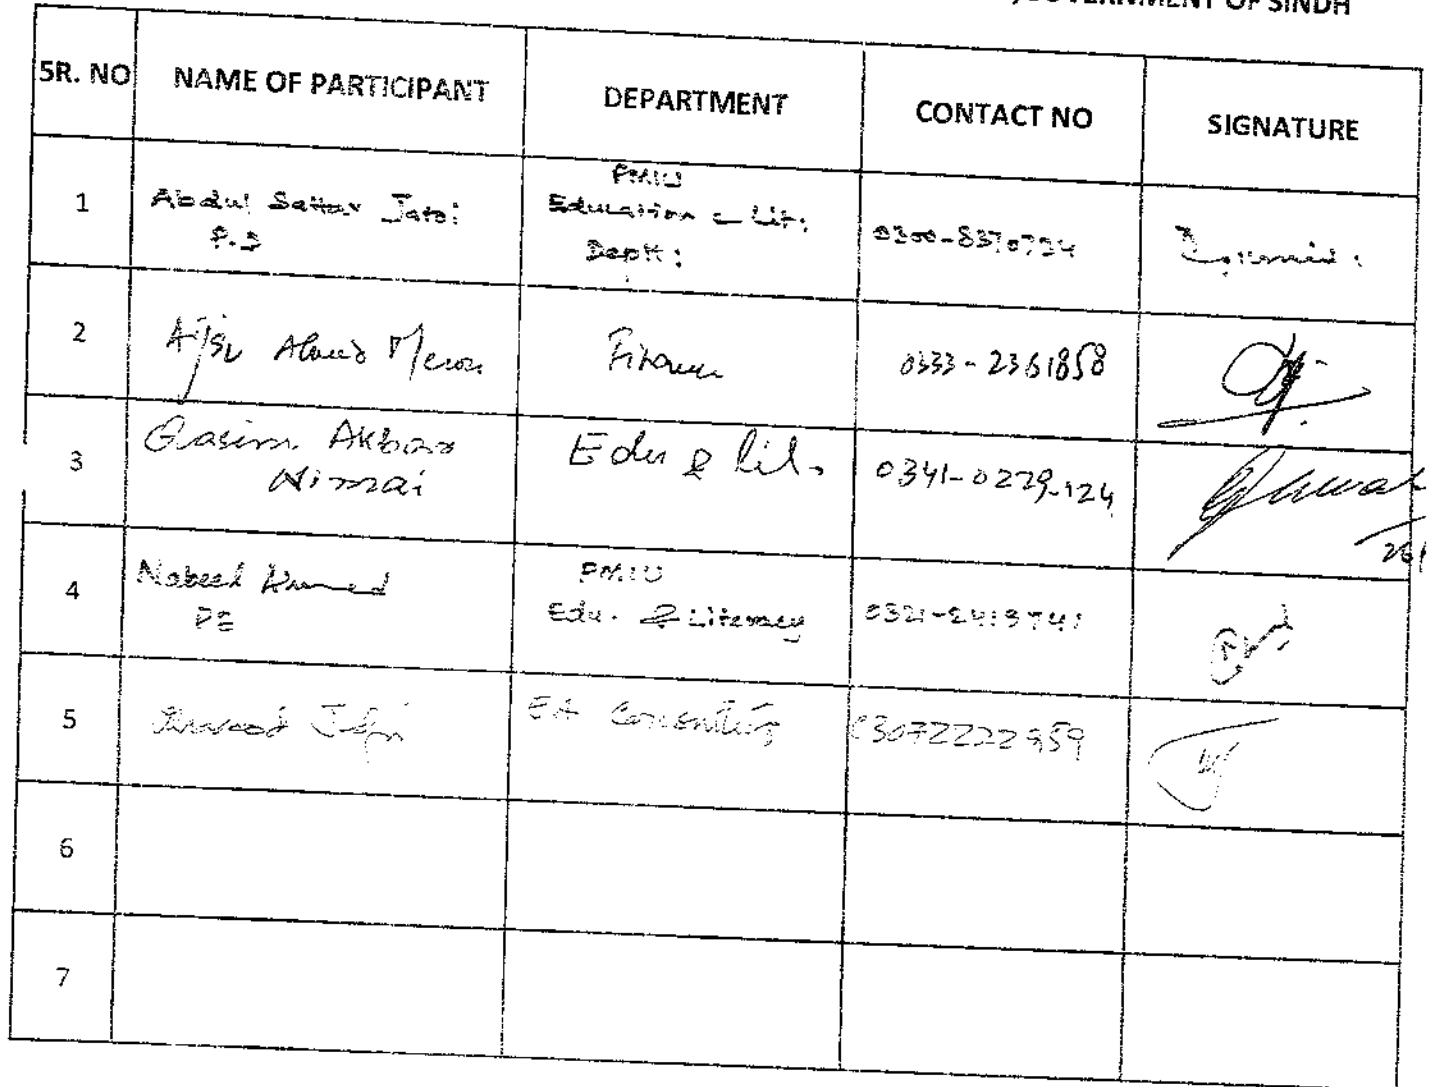 GOVERNMENT OF SINDH
SR. NO NAME OF PARTICIPANT DEPARTMENT CONTACT NO SIGNATURE
1 Abdul Sattar Jatoi PMIU
Education & Lit: 0300-8370734
Deptt:
2 Aijaz Ahmed Memon Finance 0333-2361858
3 Qasim Akbar Edu & Lit. 0341-0229-124
4 Nabeel Ahmed PMIU
PE Edu. & Literacy 0321-2413741
5 EA Consulting 03072222959
6
7